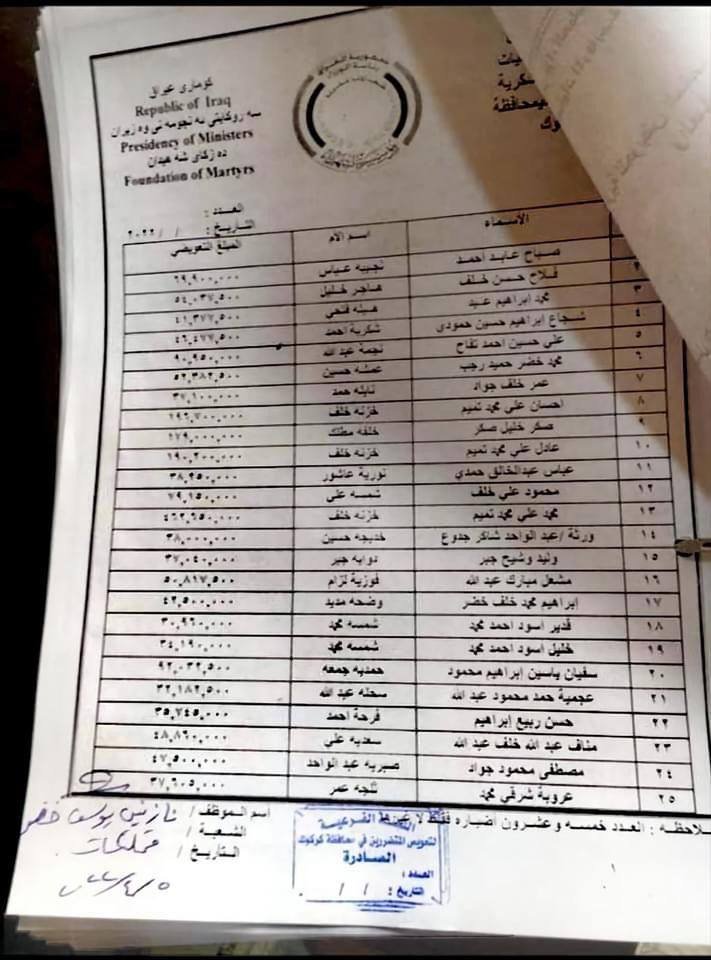 كوماري عيراق
Republic of Iraq
سه روكايتي ئه نجومه ني وه زيران
Presidency of Ministers
ده زكاي شه هيدان
Foundation of Martyrs
جمهورية العراق
رئاسة الوزراء
مؤسسة الشهداء
العدد :
التاريخ : / / ٢٠٢٢
الأسماء اسم الأم المبلغ التعويضي
صباح عايد أحمد نجيبه عباس ٦٩,٩٠٠,٠٠٠
٢ فلاح حسن خلف هاجر خليل ٥٤,٠٣٧,٥٠٠
٣ محمد إبراهيم عيد هيله فتحي ٤١,٣٧٧,٥٠٠
٤ شجاع إبراهيم حسين حمودي شكرية احمد ٤٦,٤٧٧,٥٠٠
٥ علي حسين احمد تفاح نجمة عبد الله ٩٠,٩٥٠,٠٠٠
٦ محمد خضر حميد رجب عمشه حسين ٥٢,٣٨٢,٥٠٠
٧ عمر خلف جواد نايله حمد ٣٧,١٠٠,٠٠٠
٨ احسان علي محمد تميم خزنه خلف ١٩٦,٧٠٠,٠٠٠
٩ صكر خليل صكر خلفه مطلك ١٧٩,٠٠٠,٠٠٠
١٠ عادل علي محمد تميم خزنه خلف ١٩٠,٢٠٠,٠٠٠
١١ عباس عبدالخالق حمدي نورية عاشور ٣٨,٢٥٠,٠٠٠
١٢ محمود علي خلف شمسه علي ٧٩,١٥٠,٠٠٠
١٣ محمد علي محمد تميم خزنه خلف ٤٦٢,٦٥٠,٠٠٠
١٤ ورثة /عبد الواحد شاكر جدوع خديجه حسين ٣٨,٠٠٠,٠٠٠
١٥ وليد وشيح جبر دوايه جبر ٣٧,٠٤٠,٠٠٠
١٦ مشعل مبارك عبد الله فوزية لزام ٥٠,٨١٧,٥٠٠
١٧ إبراهيم محمد خلف خضر وضحه مديد ٤٢,٥٠٠,٠٠٠
١٨ قدير اسود احمد محمد شمسه محمد ٣٠,٩٦٠,٠٠٠
١٩ خليل اسود احمد محمد شمسه محمد ٣٤,١٩٠,٠٠٠
٢٠ سفيان ياسين إبراهيم محمود حمديه جمعه ٩٢,٠٣٢,٥٠٠
٢١ عجمية حمد محمود عبد الله سحله عبد الله ٣٢,١٨٢,٥٠٠
٢٢ حسن ربيع إبراهيم فرحة احمد ٣٥,٧٤٥,٠٠٠
٢٣ مناف عبد الله خلف عبد الله سعديه علي ٤٨,٨٦٠,٠٠٠
٢٤ مصطفى محمود جواد صبريه عبد الواحد ٤٧,٥٠٠,٠٠٠
٢٥ عروبة شرقي محمد ثلجه عمر ٣٧,٦٠٥,٠٠٠
لاحظه : العدد خمسه وعشرون أضباره فقط لا غيرها
اسم الموظف / نازنين يوسف خضر
الشعبة /
التاريخ / ٥/٤/٢٠٢٢
اللجنة الفرعية
لتعويض المتضررين في محافظة كركوك
الصادرة
العدد :
التاريخ : / /